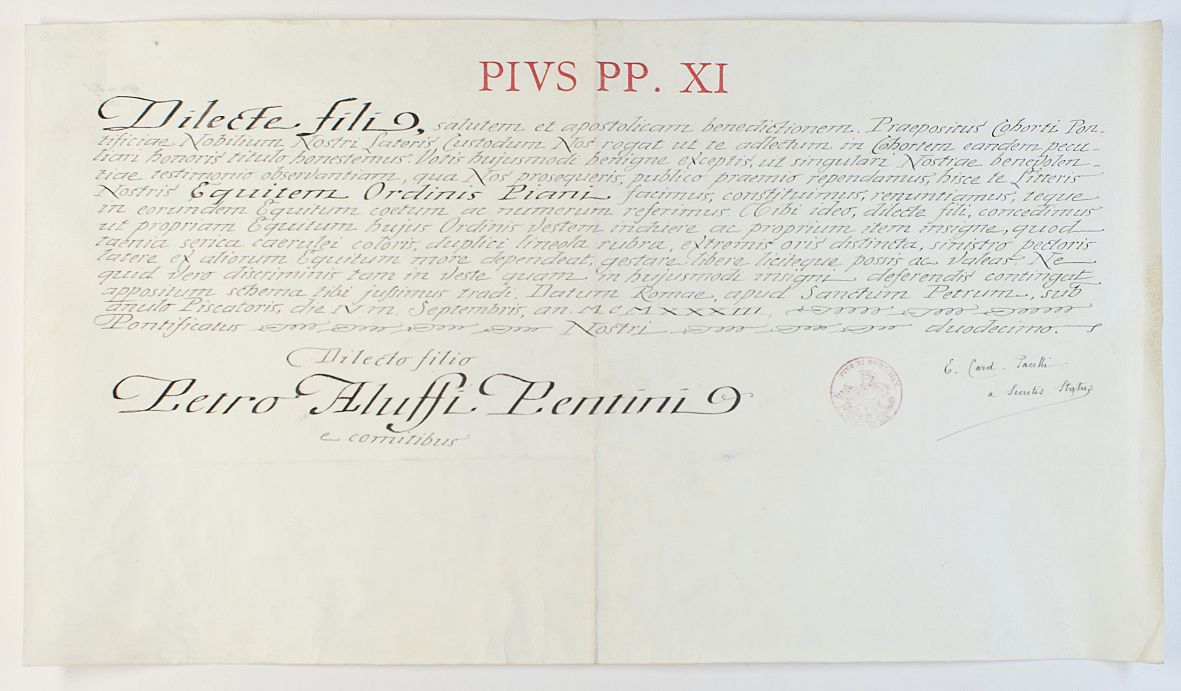 PIVS PP. XI
Dilecte fili, salutem et apostolicam benedictionem. Praepositus Cohorti Pon-
tificiae Nobilium Nostri Lateris Custodum Nos rogat ut te adlectum in Cohortem eandem pecu-
liari honoris titulo honestemus. Votis hujusmodi benigne exceptis, ut singulari Nostrae benevolen-
tiae testimonio observantiam, qua Nos prosequeris, publico praemio rependamus, hisce te Litteris
Nostris Equitem Ordinis Piani facimus, constituimus, renuntiamus, teque
in eorundem Equitum coetum ac numerum referimus. Tibi ideo, dilecte fili, concedimus
ut propriam Equitum hujus Ordinis vestem induere ac proprium item insigne, quod
taenia serica caerulei coloris, duplici lineola rubra, extremis oris distincta, sinistro pectoris
latere ex aliorum Equitum more dependeat, gestare libere liciteque possis ac valeas. Ne
quid vero discriminis tam in veste quam in hujusmodi insigni deferendis contingat
appositum schema tibi jussimus tradi. Datum Romae, apud Sanctum Petrum, sub
anulo Piscatoris, die IV m. Septembris, an. MCMXXXIII,
Pontificatus Nostri duodecimo.
Dilecto filio
Petro Aluffi Pentini
e comitibus
E. Card. Pacelli
a Secretis Status